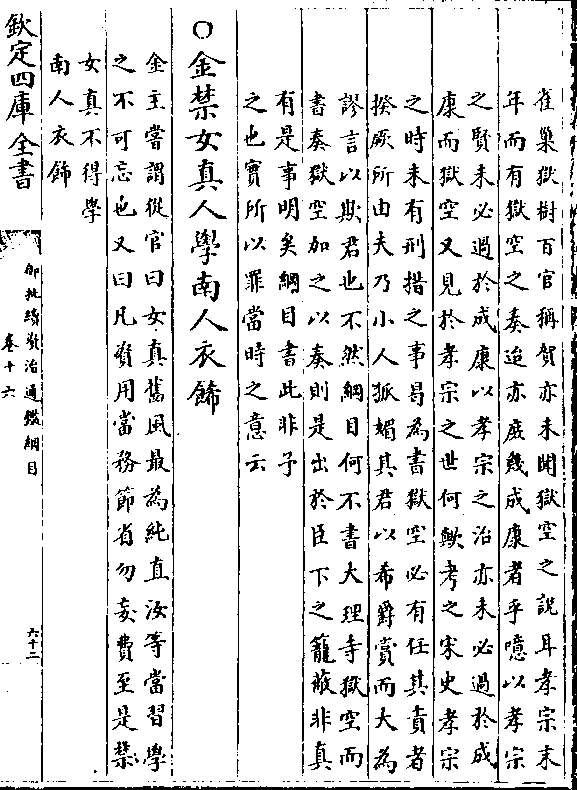 雀巢獄樹百官稱賀亦未聞獄空之說耳孝宗末
年而有獄空之奏迨亦庶幾成康者乎噫以孝宗
之賢未必過於成康以孝宗之治亦未必過於成
康而獄空又見於孝宗之世何歟考之宋史孝宗
之時未有刑措之事曷為書獄空必有任其責者
揆厥所由夫乃小人狐媚其君以希爵賞而大為
謬言以欺君也不然綱目何不書大理寺獄空而
書奏獄空加之以奏則是出於臣下之籠蔽非真
有是事明矣綱目書此非予
之也實所以罪當時之意云
○金禁女真人學南人衣飾
金主嘗謂從官曰女真舊風最為純直汝等當習學
之不可忘也又曰凡資用當務節省勿妄費至是禁
女真不得學
南人衣飾
欽定四庫全書
御批續資治通鑑綱目
卷十六
六十二